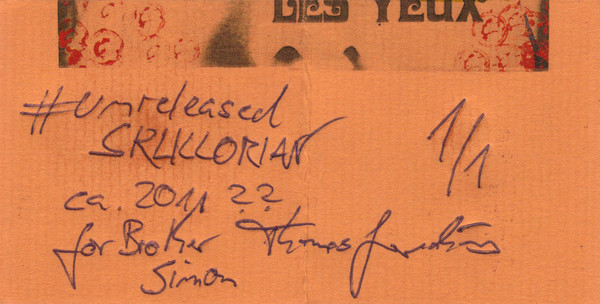 LES YEUX
#unreleased
SRLKLORIAN
1/1
ca. 2011 ??
for Brother Thomas
Simon